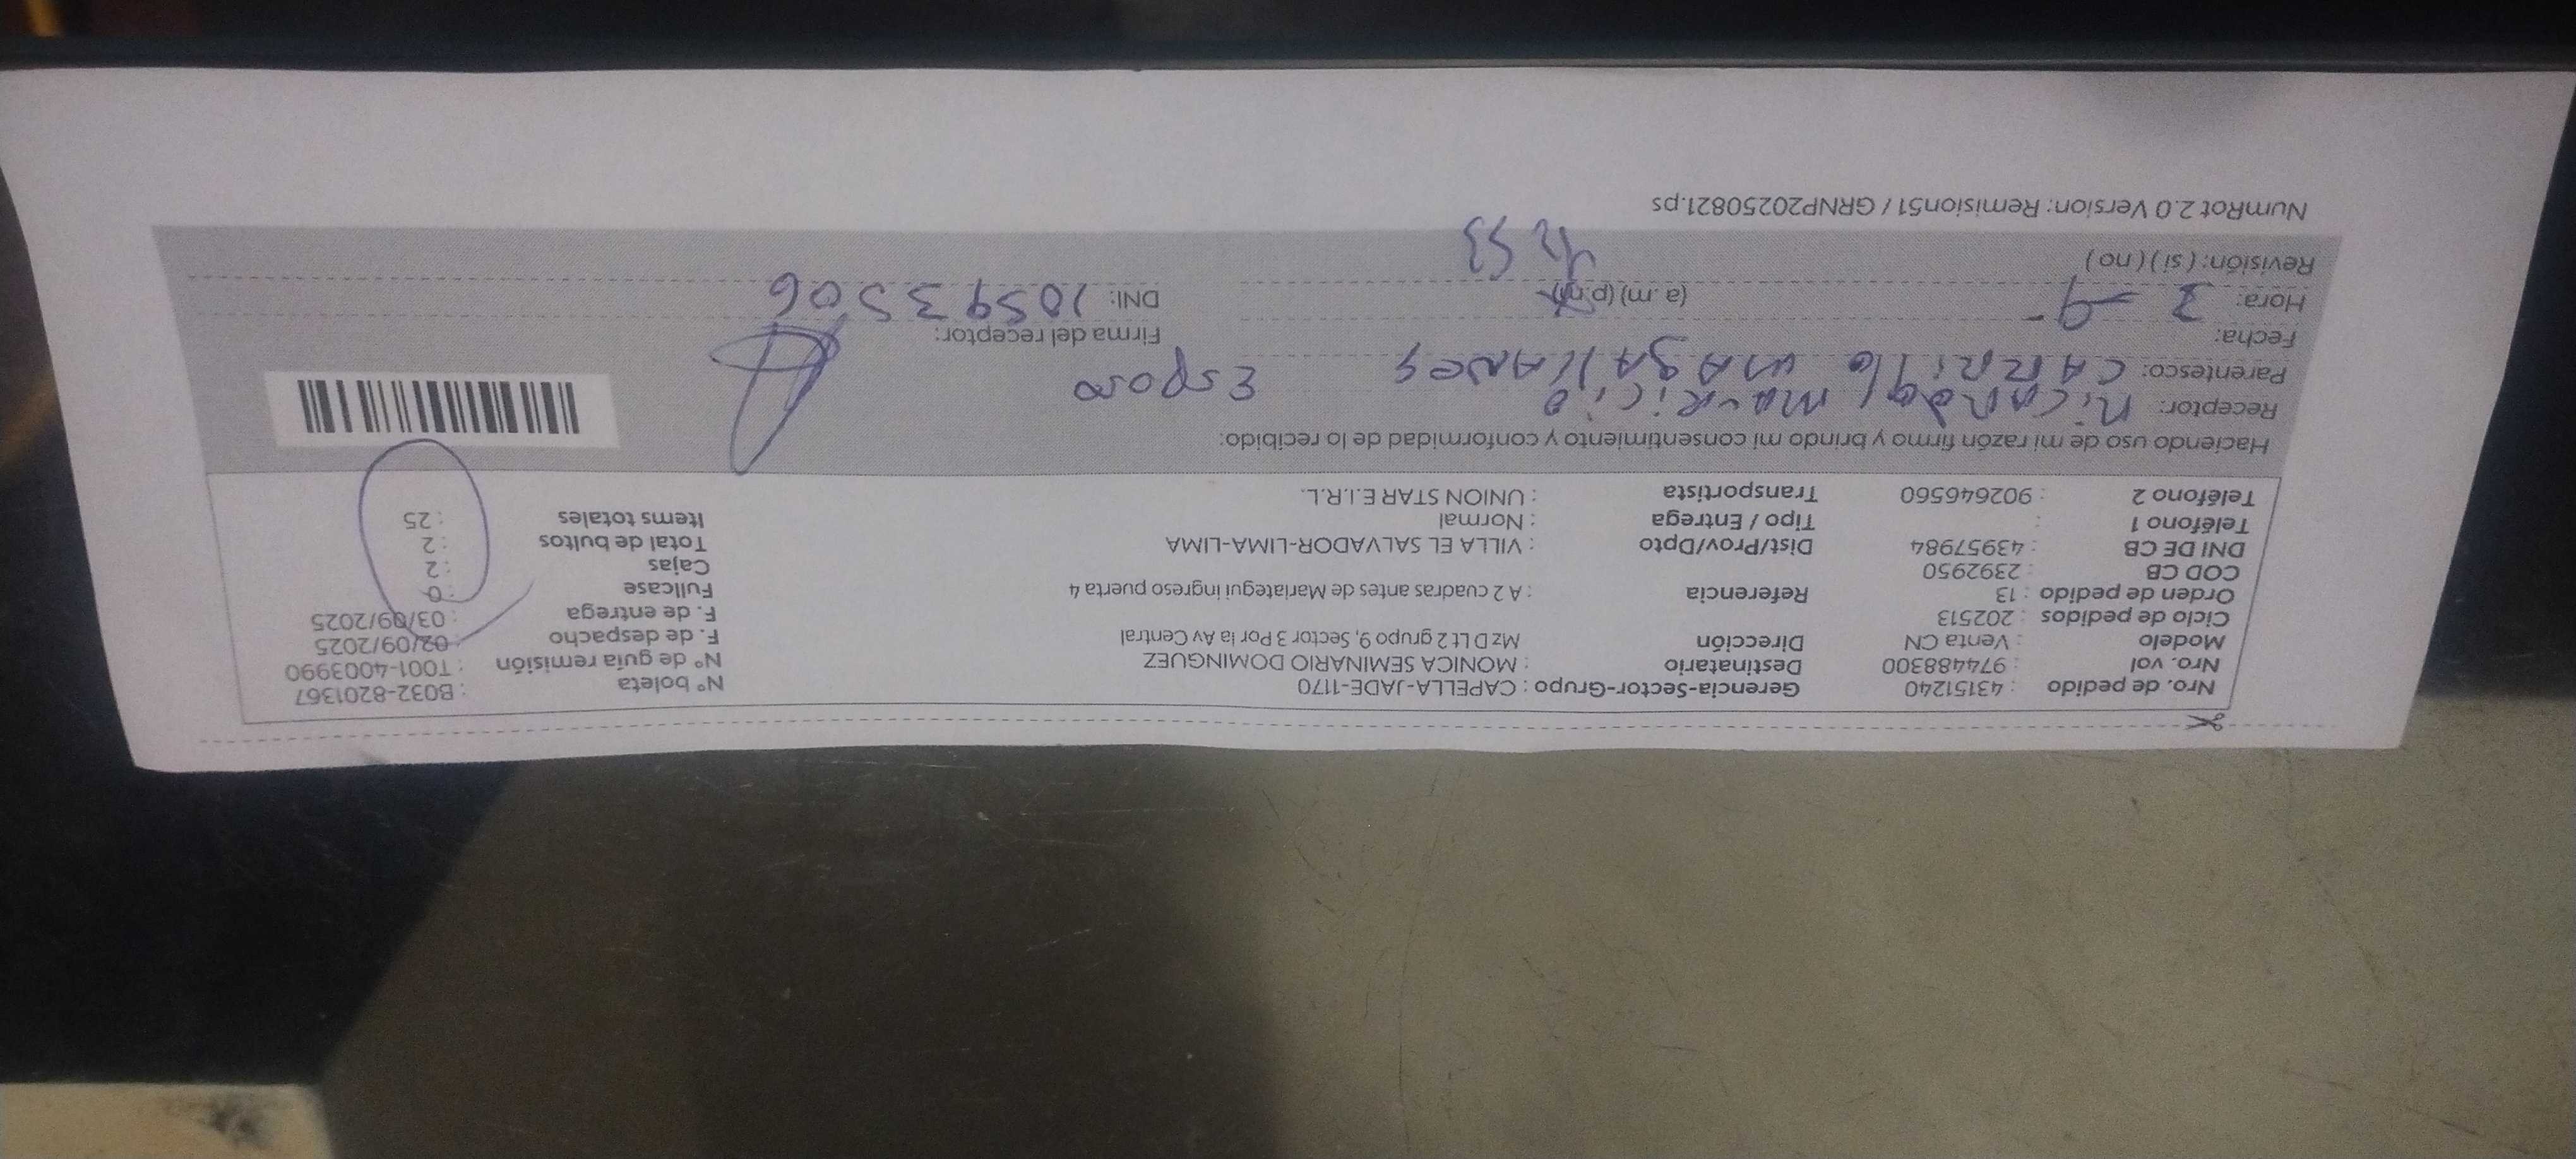 Nro. de pedido : 43151240 Gerencia-Sector-Grupo : CAPELLA-JADE-1170 N° boleta : B032-8201367
Nro. vol : 974488300 Destinatario : MONICA SEMINARIO DOMINGUEZ N° de guía remisión : T001-4003990
Modelo : Venta CN Dirección Mz D Lt 2 grupo 9, Sector 3 Por la Av Central F. de despacho : 02/09/2025
Ciclo de pedidos : 202513 F. de entrega : 03/09/2025
Orden de pedido : 13 Referencia : A 2 cuadras antes de Mariategui ingreso puerta 4 Fullcase : 0
COD CB : 2392950 Cajas : 2
DNI DE CB : 43957984 Dist/Prov/Dpto : VILLA EL SALVADOR-LIMA-LIMA Total de bultos : 2
Teléfono 1 : Tipo / Entrega : Normal Items totales : 25
Teléfono 2 : 902646560 Transportista : UNION STAR E.I.R.L.
Haciendo uso de mi razón firmo y brindo mi consentimiento y conformidad de lo recibido:
Receptor: Mauricio
Parentesco: CARRillo MAgAllANes Esposo
Fecha: Firma del receptor:
Hora: 3 - 9 - (a.m) (p.m) DNI: 10593506
Revisión: (si) (no) 53
NumRot 2.0 Version: Remision51 / GRNP20250821.ps